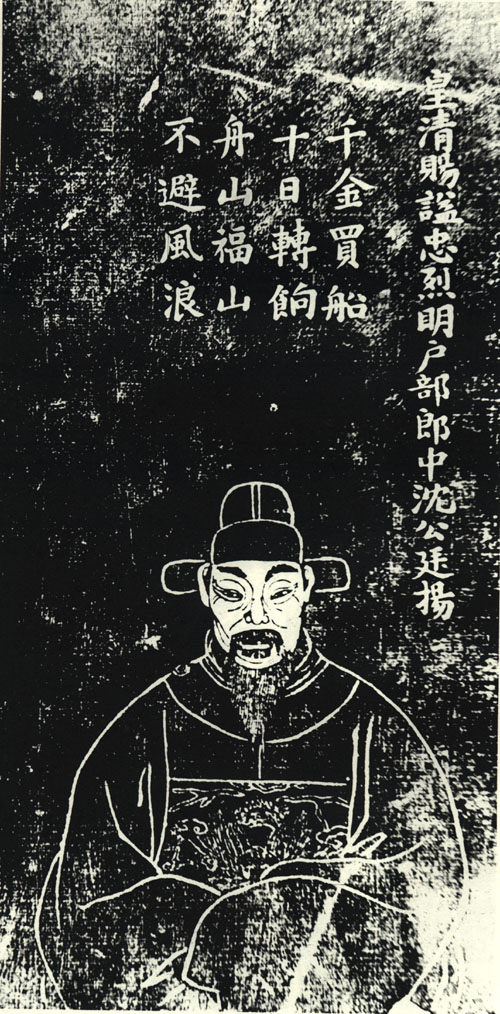 皇清賜諡忠烈明户部郎中沈公廷揚
千金買船
十日轉餉
舟山福山
不避風浪